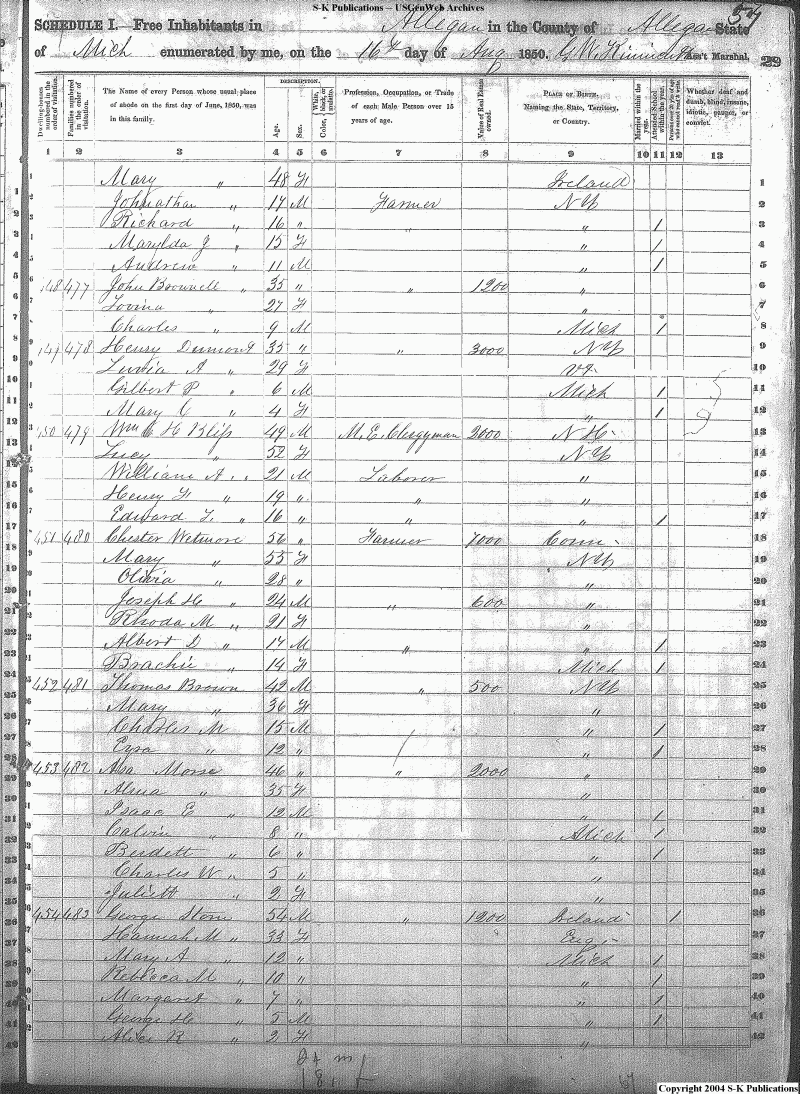 S-K Publications – USGenWeb Archives
57
SCHEDULE I.—Free Inhabitants in Allegan in the County of Allegan State
of Mich enumerated by me, on the 16th day of Aug 1850. G. W. Ass't Marshal.
29
Dwelling-houses numbered in the order of visitation.
Families numbered in the order of visitation.
The Name of every Person whose usual place of abode on the first day of June, 1850, was in this family.
DESCRIPTION.
Age.
Sex.
Color, White, black, or mulatto.
Profession, Occupation, or Trade of each Male Person over 15 years of age.
Value of Real Estate owned.
PLACE OF BIRTH. Naming the State, Territory, or Country.
Married within the year.
Attended School within the year.
Whether deaf and dumb, blind, insane, idiotic, pauper, or convict.
1 2 3 4 5 6 7 8 9 10 11 12 13
1 Mary " 48 F Ireland 1
2 Johnathan " 17 M Farmer NY 2
3 Richard " 16 " " " 1 3
4 Marylda J " 15 F " 1 4
5 Andrew " 11 M " 1 5
6 448 477 John Brownell 35 " " 1200 " 6
7 Lovina " 27 F " 7
8 Charles " 9 M Mich 1 8
9 449 478 Henry Dumont 35 " " 3000 NY 9
10 A " 29 F Vt. 10
11 Gilbert P " 6 M Mich 1 11
12 Mary C " 4 F " 1 12
13 450 479 Wm H Bliss 49 M M. E. Clergyman 2000 N H. 13
14 Lucy " 52 F NY 14
15 William A. " 21 M Laborer " 15
16 Henry F " 19 " " " 16
17 Edward T. " 16 " " " 1 17
18 451 480 Chester Wetmore 56 " Farmer 7000 Conn 18
19 Mary " 55 F NY 19
20 Olivia " 28 " " 20
21 Joseph H " 24 M " 600 " 21
22 Rhoda M " 21 F " 22
23 Albert D " 17 M " " 1 23
24 Brachie " 14 F Mich 1 24
25 452 481 Thomas Brown 42 M " 500 NY 25
26 Mary " 36 F " 26
27 Charles M 15 M " 1 27
28 Ezra " 12 " " 1 28
29 453 482 Asa Morse 46 " " 2000 " 29
30 Alma " 35 F " 30
31 Isaac E " 12 M " 1 31
32 Calvin " 8 " Mich 1 32
33 Burdett " 6 " " 1 33
34 Charles W " 5 " " 34
35 Juliett " 2 F " 35
36 454 483 George Storn 54 M " 1200 Ireland 1 36
37 Hannah M " 33 F Eng. 37
38 Mary A " 12 " Mich 1 38
39 Rebecca M " 10 " " 1 39
40 Margaret " 7 " " 1 40
41 George H " 5 M " 1 41
42 Alice R " 2 F " 42
24 m
18. f
Copyright 2004 S-K Publications